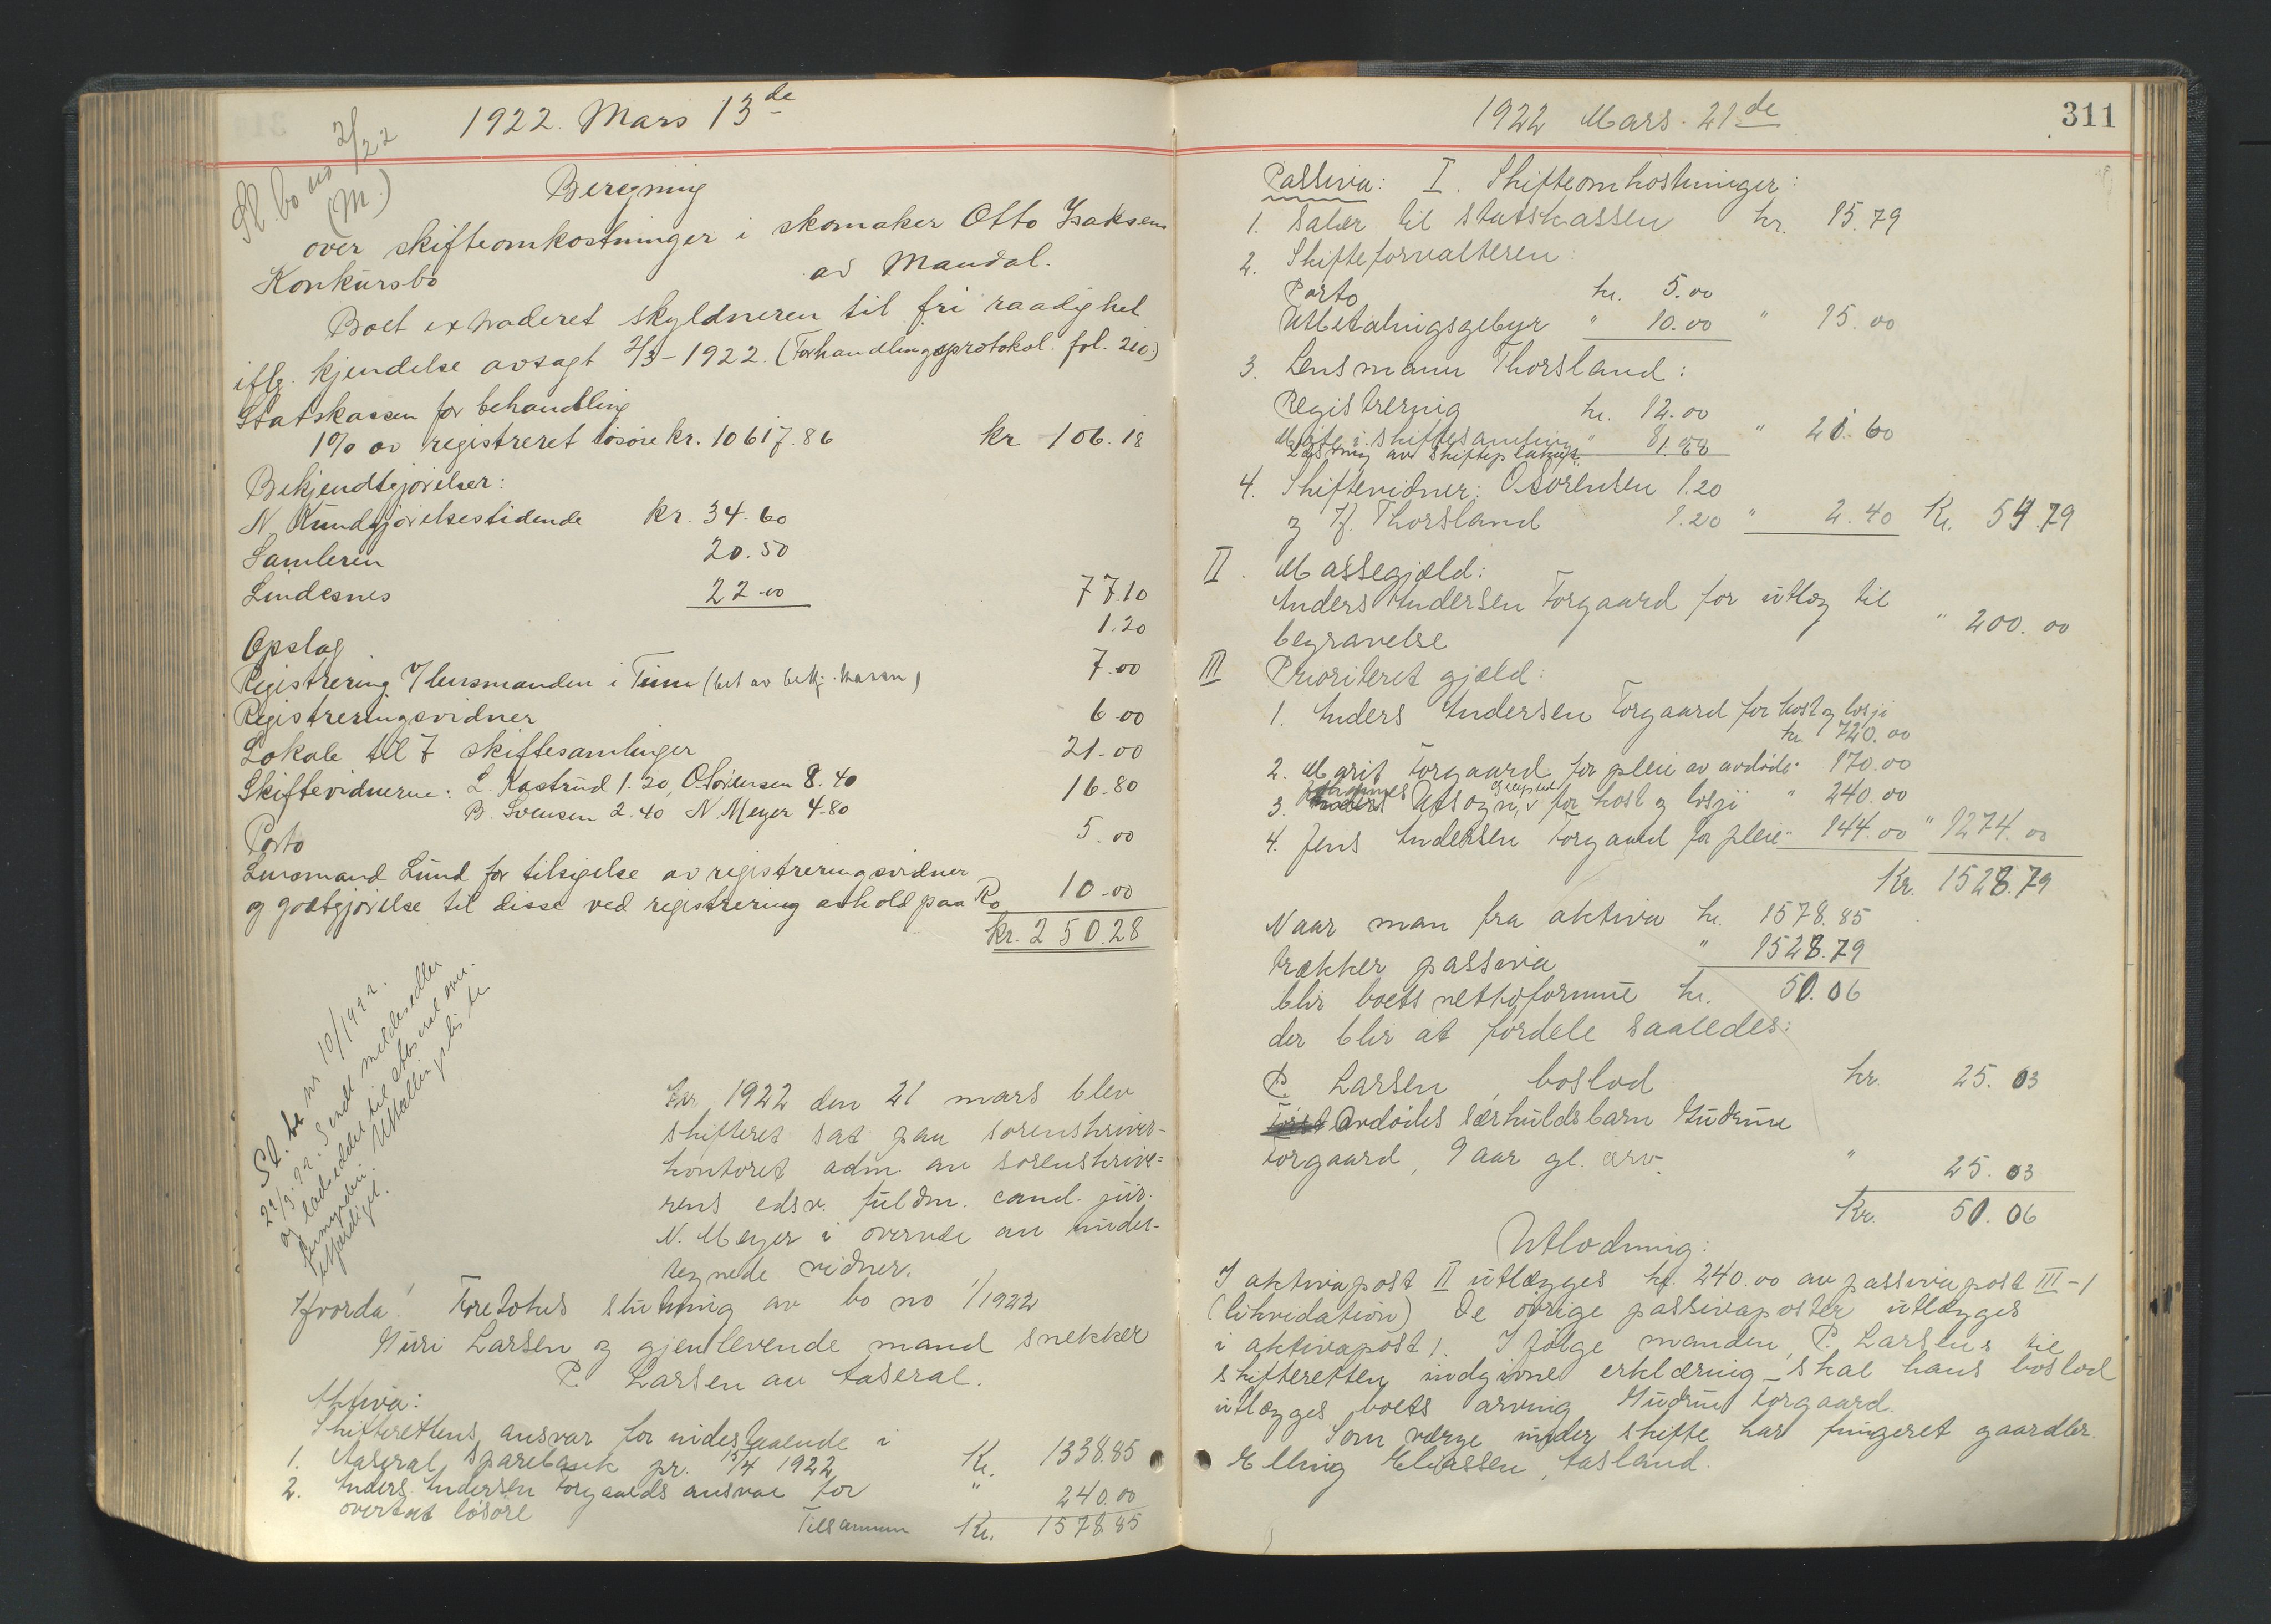 1922. Mars 13de
Sk. bo no 2/22
(M.)
Beregning
over skifteomkostninger i skomaker Otto Isaksens
Konkursbo av Mandal.
Boet extraderet skyldneren til fri raadighet
iflg. kjendelse avsagt 2/3-1922. (Forhandlingsprotokol. fol. 210)
Statskassen for behandling
1% av registreret løsøre kr. 10617.86 kr 106.18
Bekjendtgjørelser:
N. Kundgjørelsestidende kr. 34.60
Samleren 20.50
Lindesnes 22.00 77.10
Opslag 1.20
Registrering v/ lensmanden i (bet av bekj. kassen) 7.00
Registreringsvidner 6.00
Lokale til 7 skiftesamlinger 21.00
Skiftevidnerne: L. Kastrud 1.20, O. Sørensen 8.40 16.80
B. Svensen 2.40 N. Meyer 4.80
Porto 5.00
Lensmand Lund for tilsigelse av registreringsvidner
og godtgjørelse til disse ved registrering avhold paa Ro 10.00
kr. 250.28
Sk. bo nr 10/1922.
22/3.22. Sendt meldesedler
og dødsseddel til Aaseral over-
formynderi. Utstillingsliste
utfærdiget.
Aar 1922 den 21 mars blev
skifteret sat paa sorenskriver-
kontoret adm. av sorenskrive-
rens edsv. fuldm. cand. jur.
N. Meyer i overvær av under-
tegnede vidner.
Hvorda! Foretokes slutning av bo no 1/1922
Guri Larsen og gjenlevende mand snekker
P. Larsen av Aaseral.
Aktiva:
Skifterettens ansvar for indestaaende i
1. Aaseral Sparebank pr. 15/4 1922 Kr. 1338.85
2. Anders Andersen Torgaards ansvar for " 240.00
overtat løsøre
Tilsammen Kr. 1578.85
1922 Mars. 21de
311
Passiva: I. Skifteomkostninger:
1. Salær til statskassen kr. 15.79
2. Skifteforvalteren:
Porto kr. 5.00
Utbetalingsgebyr " 10.00 " 15.00
3. Lensmann Thorsland:
Registrering kr. 12.00
Møte i skiftesamling " 8. " 21.60
Læsning av skifteplakat 1.60
4. Skiftevidner: O. Sørensen 1.20
og Kf. Thorsland 1.20 " 2.40 Kr. 54.79
II. Massegjæld:
Anders Andersen Torgaard for utlæg til
begravelse " 200.00
III Prioriteret gjæld:
1. Anders Andersen Torgaard for kost og losji
kr. 720.00
2. Marit Torgaard for pleie av avdøde " 170.00
3. for kost og losji " 240.00
4. Jens Andersen Torgaard for pleie " 144.00 " 1274.00
Kr. 1528.79
Naar man fra aktiva kr. 1578.85
trækker passiva " 1528.79
blir boets nettoformue kr. 50.06
der blir at fordele saaledes:
P. Larsen, boslod kr. 25.03
Avdødes særkuldsbarn Gudrun
Torgaard, 9 aar gl. arv. " 25.03
Kr. 50.06
Utlodning:
I aktivapost II utlægges kr. 240.00 av passivapost III-1
(likvidation) De øvrige passivaposter utlægges
i aktivapost 1. I følge manden, P. Larsens til
skifteretten indgivne erklæring skal hans boslod
utlægges boets arving Gudrun Torgaard.
Som værge under skifte har fungeret gaardbr.
Elling Eliassen, Aasland.